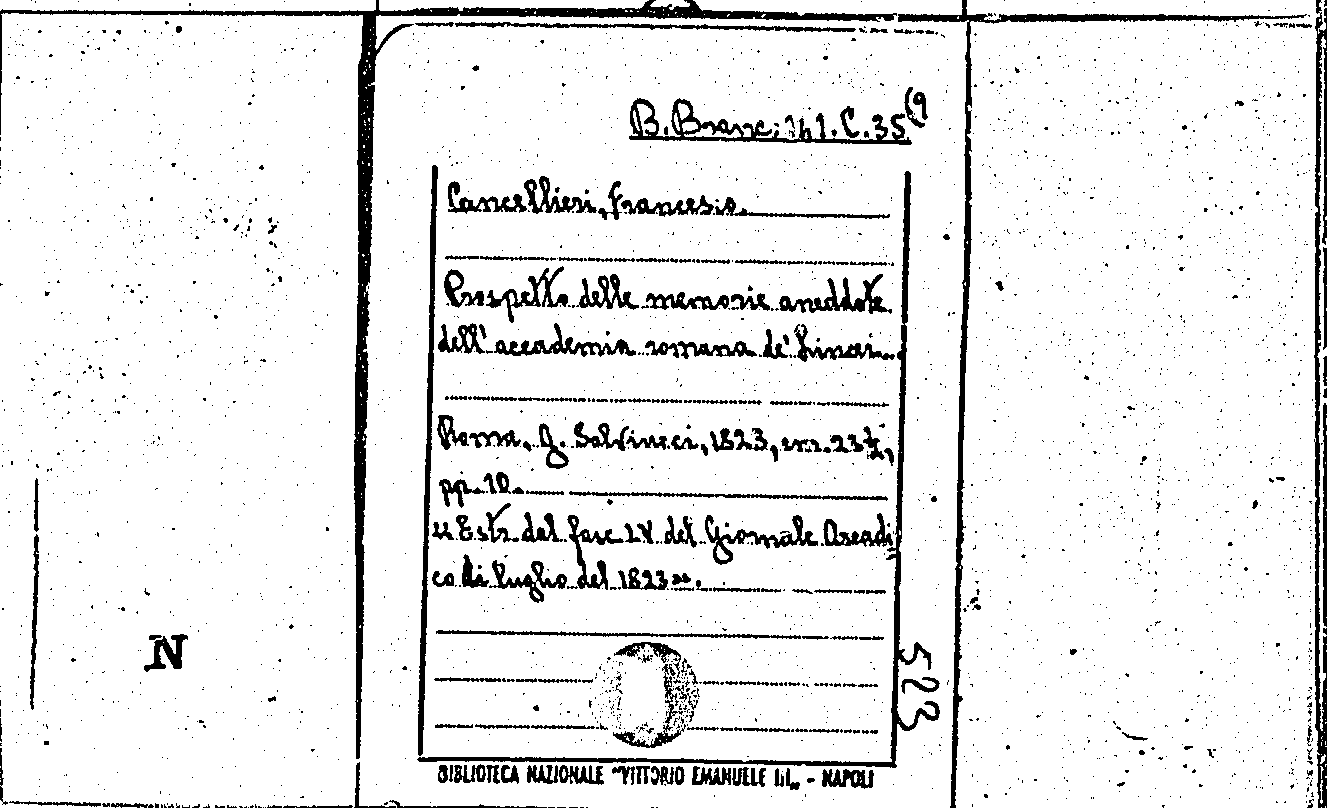 B. Branc. 141. C. 35(9
Cancellieri, Francesco.
Prospetto delle memorie aneddote
dell' accademia romana de' Lincei...
Roma, G. Salviucci, 1823, cm. 23½,
pp. 10.
"Estr. dal fasc. LV del Giornale Arcadi
co di Luglio del 1823".
N
523
BIBLIOTECA NAZIONALE "VITTORIO EMANUELE III„ - NAPOLI